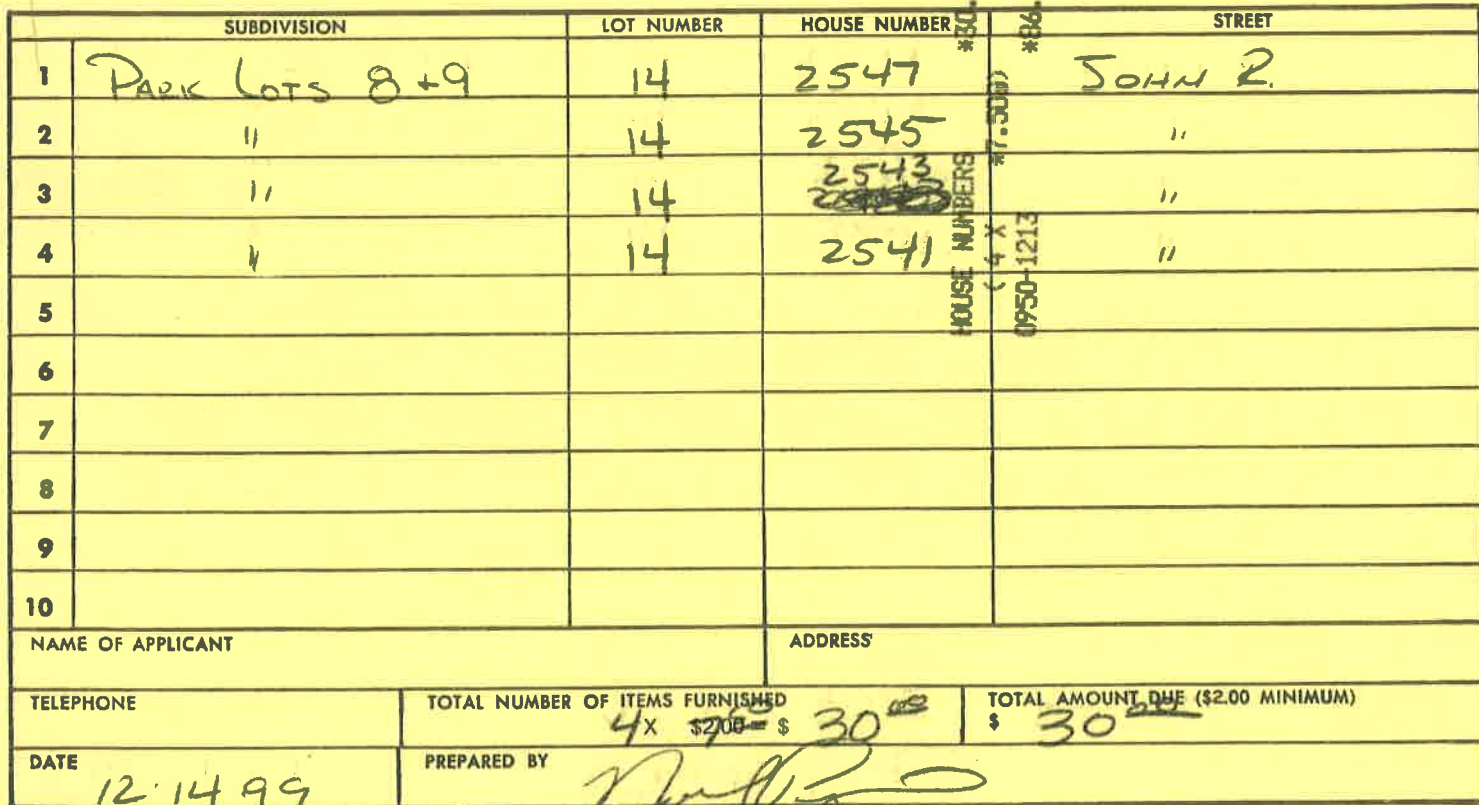 SUBDIVISION LOT NUMBER HOUSE NUMBER STREET
1 PARK LOTS 8+9 14 2547 JOHN R.
2 " 14 2545 "
3 " 14 2543 "
4 " 14 2541 "
5
6
7
8
9
10
HOUSE NUMBERS *30.
( 4 X *7.50@)
0950-1213 *86.
NAME OF APPLICANT ADDRESS
TELEPHONE TOTAL NUMBER OF ITEMS FURNISHED TOTAL AMOUNT DUE ($2.00 MINIMUM)
4 X $2.00 = $ 30 00 $ 30 00
DATE PREPARED BY
12.14 99